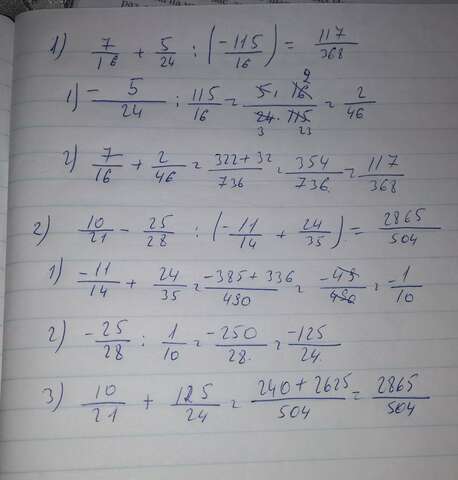 1) 7/16 + 5/24 : (-115/16) = 117/368
1) -5/24 : 115/16 = 5 · 16 2/24 3 · 115 23 = 2/46
2) 7/16 + 2/46 = 322+32/736 = 354/736 = 117/368
2) 10/21 - 25/28 : (-11/14 + 24/35) = 2865/504
1) -11/14 + 24/35 = -385+336/490 = -49/490 = -1/10
2) -25/28 : 1/10 = -250/28 = -125/24
3) 10/21 + 125/24 = 240+2625/504 = 2865/504